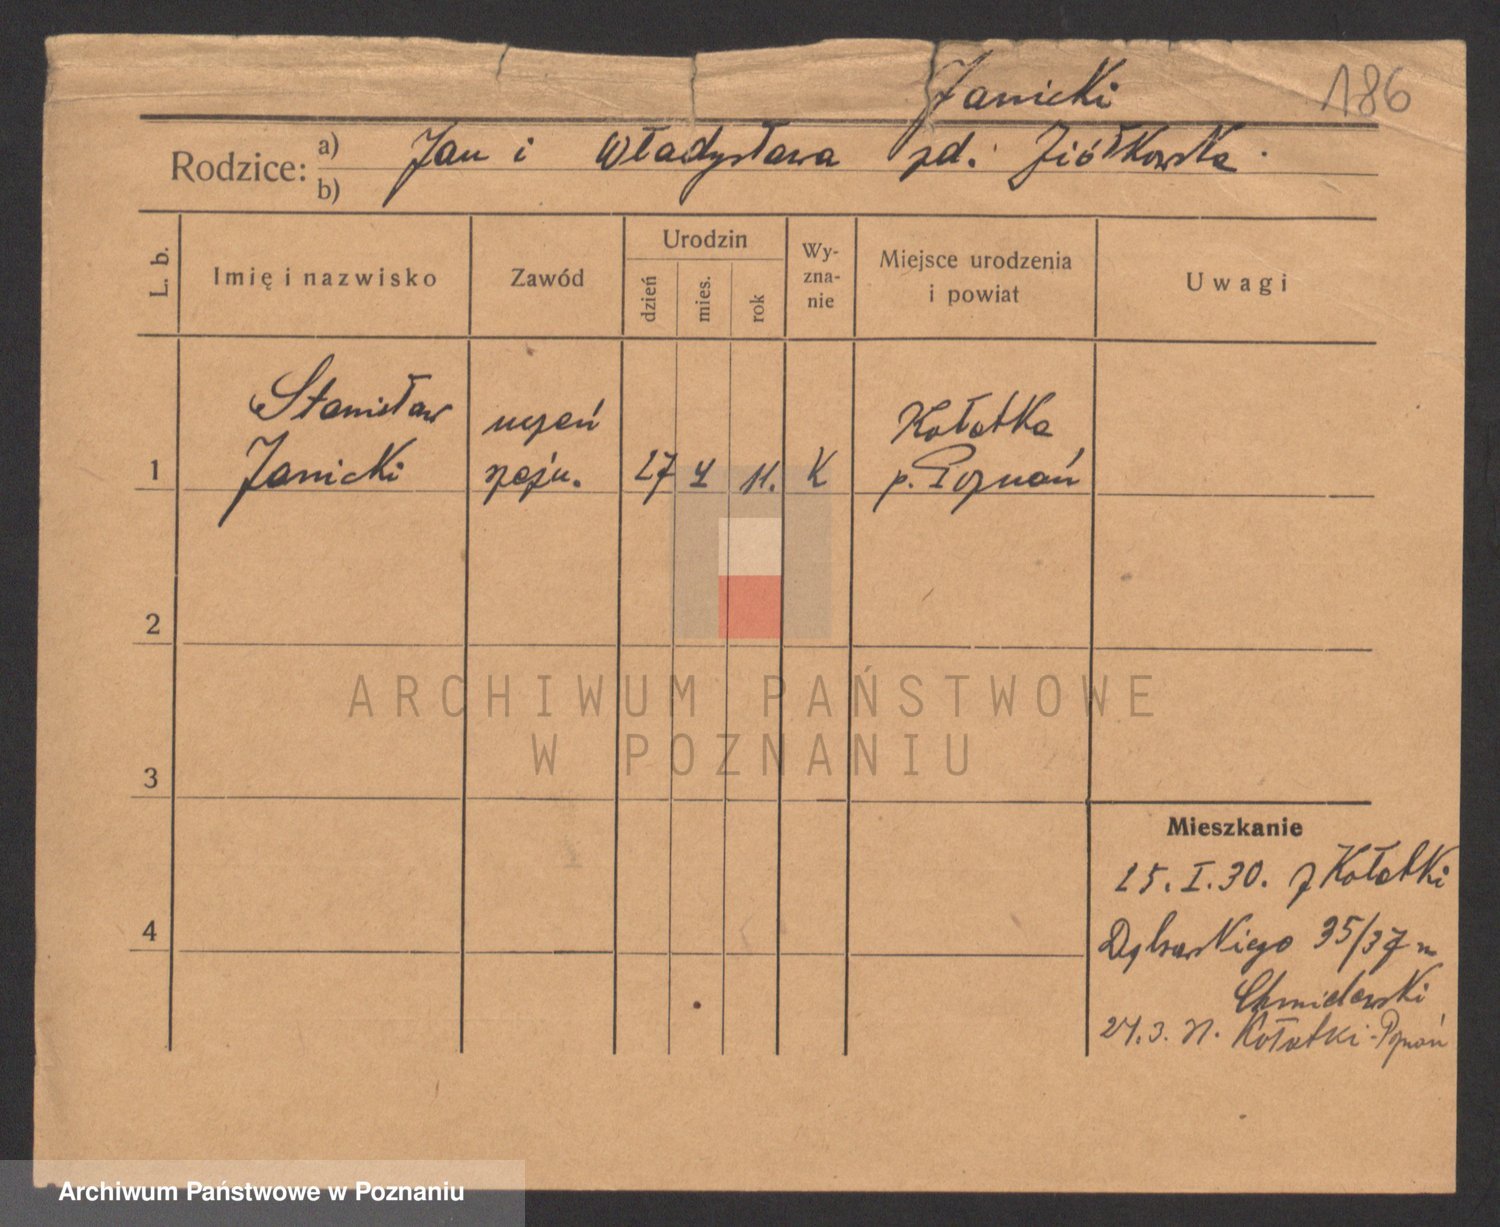 Janicki
186
Rodzice: a) Jan i Władysława zd. Ziółkowska
b)
L. b.
Imię i nazwisko
Zawód
Urodzin
dzień
mies.
rok
Wy-
zna-
nie
Miejsce urodzenia
i powiat
Uwagi
Stanisław uczeń Kołatka
1 Janicki 27 4 11. K p. Poznań
2
ARCHIWUM PAŃSTWOWE
W POZNANIU
3
Mieszkanie
25.I.30. z Kołatki
4
Dąbrowskiego 35/37
Chmielewski
Kołatki-Poznań
Archiwum Państwowe w Poznaniu